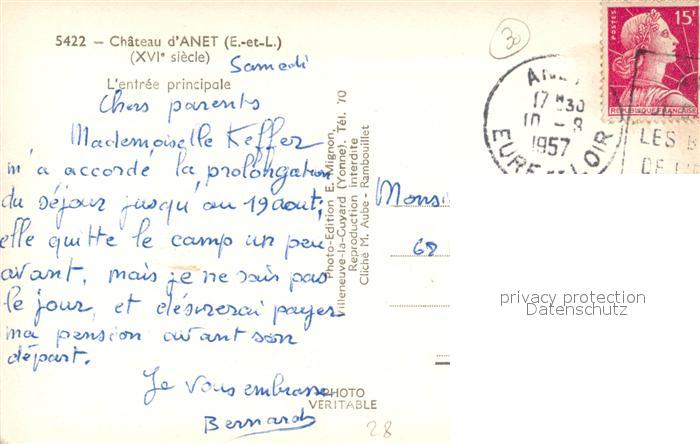 5422 — Château d'ANET (E.-et-L.)
(XVIe siècle)
L'entrée principale
Samedi
Chers parents
Mademoiselle Keffer
m'a accordé la prolongation
du séjour jusqu'au 19 aout;
elle quitte le camp un peu
avant, mais je ne sais pas
le jour, et désirerai payer
ma pension avant son
départ.
Je vous embrasse
Bernard
Photo-Edition E. Mignon,
Villeneuve-la-Guyard (Yonne). Tél. 70
Reproduction Interdite
Cliché M. Aube - Rambouillet
PHOTO
VERITABLE
28
30
ANET
17 H30
10 - 8
1957
EURE-ET-LOIR
POSTES
15F
REPUBLIQUE FRANÇAISE
LES
DE
Monsi
68
privacy protection
Datenschutz